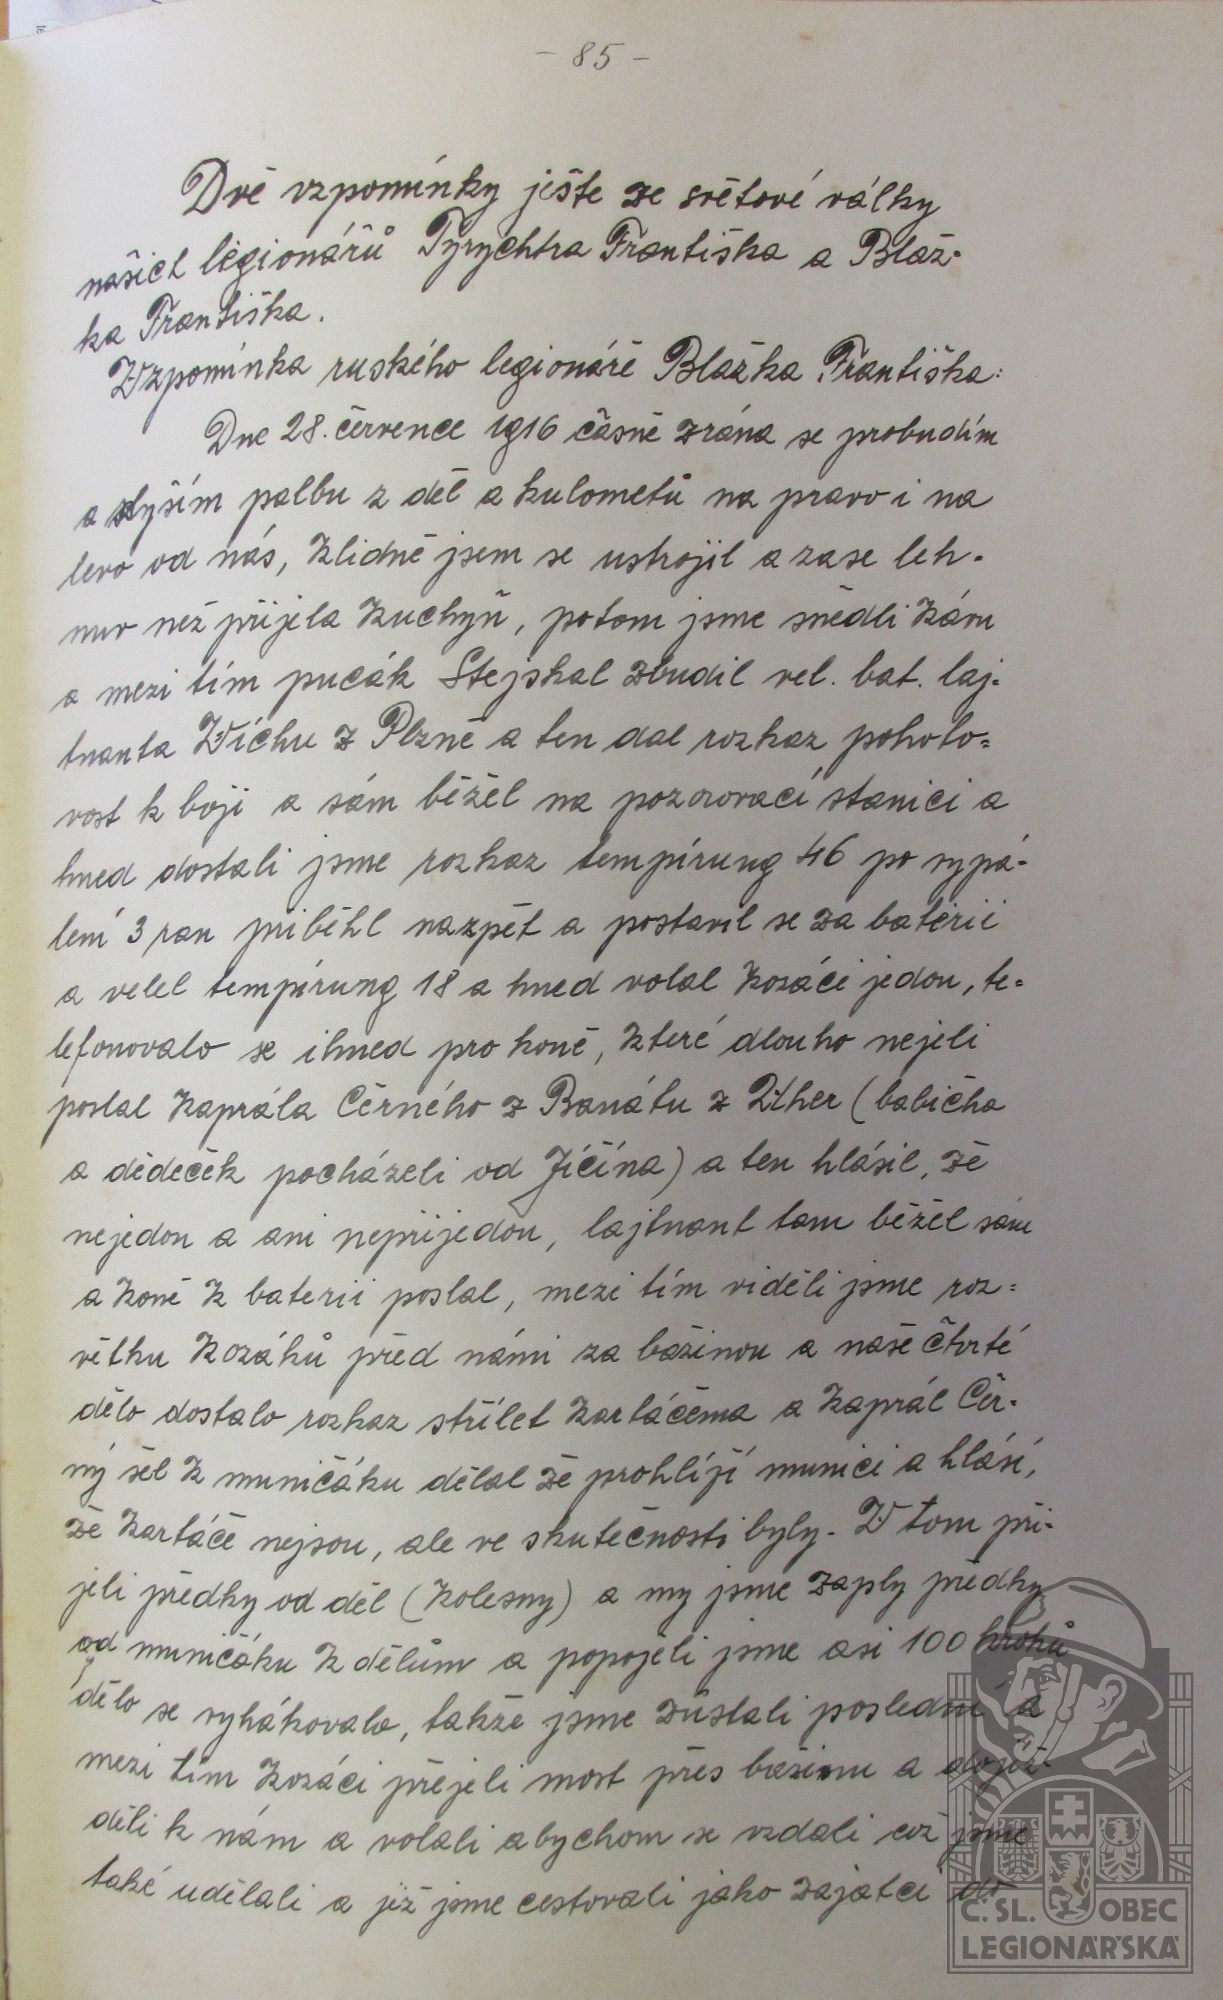 - 85 -
Dvě vzpomínky ješte ze světové války
našich légionářů Tyrychtra Františka a Blaž-
ka Františka.
Vzpomínka ruského legionáře Blažka Františka:
Dne 28. července 1916 časně zrána se probudím
a slyším palbu z děl a kulometů na pravo i na
levo od nás, klidně jsem se ustrojil a zase leh-
nuv než přijela kuchyň, potom jsme snědli kávu
a mezi tím pucák Stejskal zbudil vel. bat. laj-
tnanta Víchu z Plzně a ten dal rozkaz pohoto=
vost k boji a sám běžel na pozorovací stanici a
hned dostali jsme rozkaz tempírung 46 po vypá-
lení 3 ran přiběhl nazpět a postavil se za baterii
a velel tempírung 18 a hned volal kozáci jedou, te=
lefonovalo se ihned pro koně, které dlouho nejeli
poslal kaprála Černého z Banátu z (babička
a dědeček pocházeli od Jíčína) a ten hlásil, že
nejedou a ani nepřijedou, lajtnant tam běžel sám
a koně k baterii poslal, mezi tím viděli jsme roz=
větku kozáků před námi za bažinou a naše čtvrté
dělo dostalo rozkaz střílet kartáčema a kaprál Čer-
ný šel k muničáku dělal že prohlíží munici a hlásí,
že kartáče nejsou, ale ve skutečnosti byly. V tom při-
jeli předky od děl (kolesny) a my jsme zaply předky
od muničáku k dělům a popojeli jsme asi 100 kroků
dělo se vyhákovalo, takže jsme zůstali poslední a
mezi tím kozáci přejeli most přes bažinu a dojíž-
děli k nám a volali abychom se vzdali což jsme
také udělali a již jsme cestovali jako zajatci do
Č. SL. OBEC
LEGIONÁŘSKÁ